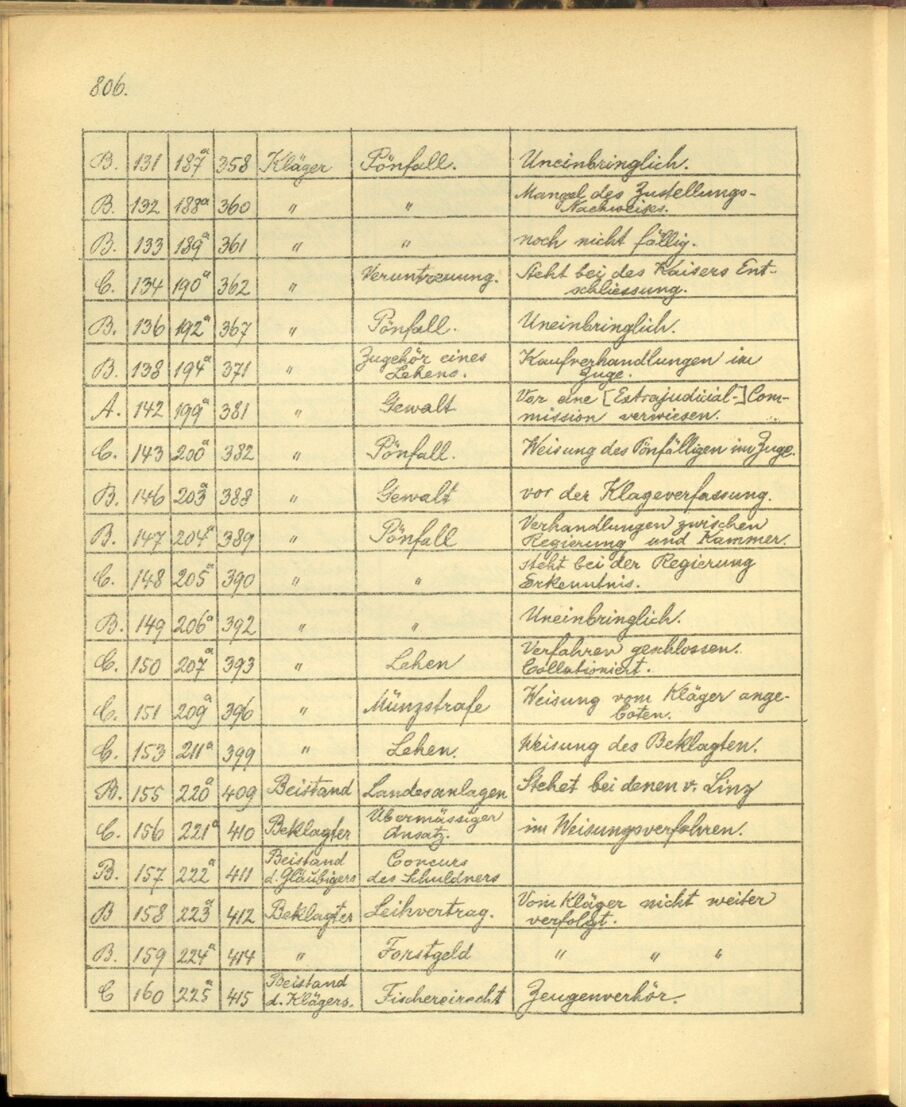 806.
B. 131 187a 358 Kläger Pönfall. Uneinbringlich.
B. 132 188a 360 " " Mangel des Zustellungs-
Nachweises.
B. 133 189a 361 " " noch nicht fällig.
C. 134 190a 362 " Veruntreuung. Steht bei des Kaisers Ent-
schliessung.
B. 136 192a 367 " Pönfall. Uneinbringlich.
B. 138 194a 371 " Zugehör eines Kaufverhandlungen im
Lehens. Zuge.
A. 142 199a 381 " Gewalt Vor eine [Extrajudicial-] Com-
mission verwiesen.
C. 143 200a 382 " Pönfall. Weisung des Pönfälligen im Zuge.
B. 146 203a 388 " Gewalt vor der Klageverfassung.
B. 147 204a 389 " Pönfall Verhandlungen zwischen
Regierung und Kammer.
C. 148 205a 390 " " steht bei der Regierung
Erkenntnis.
B. 149 206a 392 " " Uneinbringlich.
C. 150 207a 393 " Lehen Verfahren geschlossen.
Collationiert.
C. 151 209a 396 " Münzstrafe Weisung vom Kläger ange-
boten.
C. 153 211a 399 " Lehen. Weisung des Beklagten.
B. 155 220a 409 Beistand Landesanlagen Stehet bei denen v. Linz
C. 156 221a 410 Beklagter Übermässiger im Weisungsverfahren.
Ansatz.
B. 157 222a 411 Beistand Concurs
d. Gläubigers des Schuldners
B 158 223a 412 Beklagter Leihvertrag. Vom Kläger nicht weiter
verfolgt.
B. 159 224a 414 " Forstgeld " " "
C 160 225a 415 Beistand Fischereirecht Zeugenverhör.
d. Klägers.